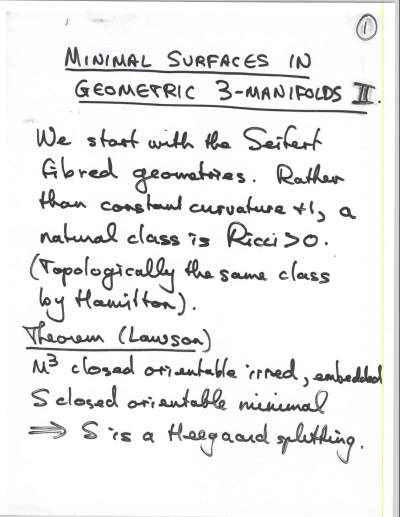 1
MINIMAL SURFACES IN
GEOMETRIC 3-MANIFOLDS II.
We start with the Seifert
fibred geometries. Rather
than constant curvature +1, a
natural class is Ricci > 0.
(Topologically the same class
by Hamilton).
Theorem (Lawson)
M³ closed orientable irred, embedded
S closed orientable minimal
⟹ S is a Heegaard splitting.